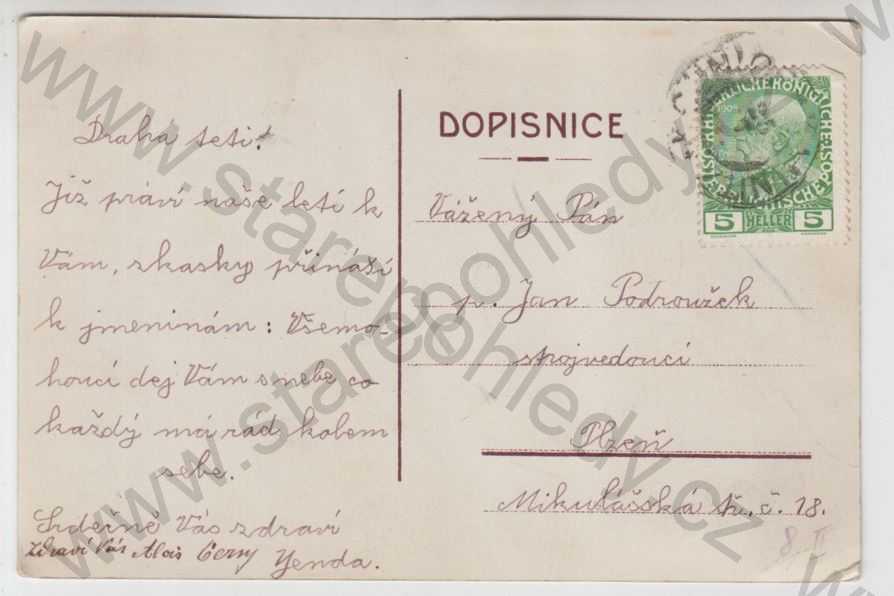 Drahá teti!
Již práví naše letí k
Vám, zkasky přináší
k jmeninám: Všemo-
houcí dej Vám s nebe co
každý má rád kolem
sebe.
Srdečně Vás zdraví
Zdraví Vás Alois Černy Yenda.
DOPISNICE
Vážený Pán
p. Jan Podroužek
strojvedoucí
Plzeň
Mikulášská tř. č. 18.
8 II
5 HELLER 5
1908
www.starepohledy.cz
www.starepohledy.cz